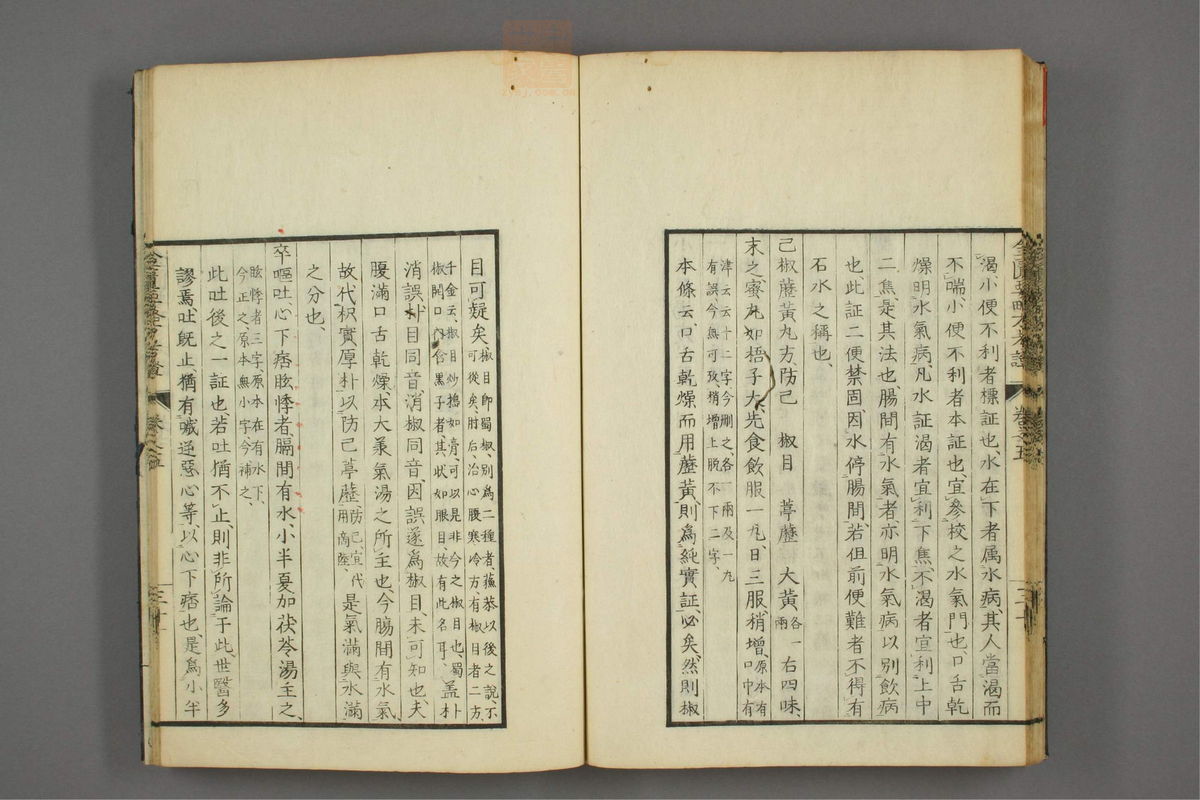 渴、小便不利者標証也、水在下者属水病、其人當渴而
不喘、小便不利者本証也、宜參校之水氣門也、口舌乾
燥明水氣病、凡水証渴者宜利下焦、不渴者宜利上中
二焦、是其法也、腸間有水氣者亦明水氣病以別飲病
也、此証二便禁固、因水停腸間、若但前便難者不得有
石水之稱也、
己椒藶黃丸方、防己 椒目 葶藶 大黃各一兩 右四味、
末之、蜜丸如梧子大、先食飲服一丸、日三服、稍增、原本有口中有
津云云十二字今刪之、各一兩及一九
有誤、今無可攷、稍增上脫不下二字、
本條云、口舌乾燥而用藶黃、則爲純實証必矣、然則椒
目可疑矣、椒目卽蜀椒、別爲二種者、蘓恭以後之說、不
可從矣、肘后、治心腹寒冷方有椒目者二方、
千金云、椒目炒搗如膏、可以見非今之椒目也、蜀
椒開口內含黑子者、其狀如眼目、故有此名耳、蓋朴
消誤、朴目同音、消椒同音、因誤遂爲椒目、未可知也、夫
腹滿口舌乾燥、本大承氣湯之所主也、今腸間有水氣
故代枳實厚朴以防己葶藶、防己宜代用商陸、是氣滿與水滿
之分也、
卒嘔吐、心下痞眩悸者、膈間有水、小半夏加茯苓湯主之、
眩悸者三字、原本在有水下、
今正之、原本無小字今補之、
此吐後之一証也、若吐猶不止、則非所論于此、世醫多
謬焉、吐旣止、猶有噦逆惡心等、以心下痞也、是爲小半